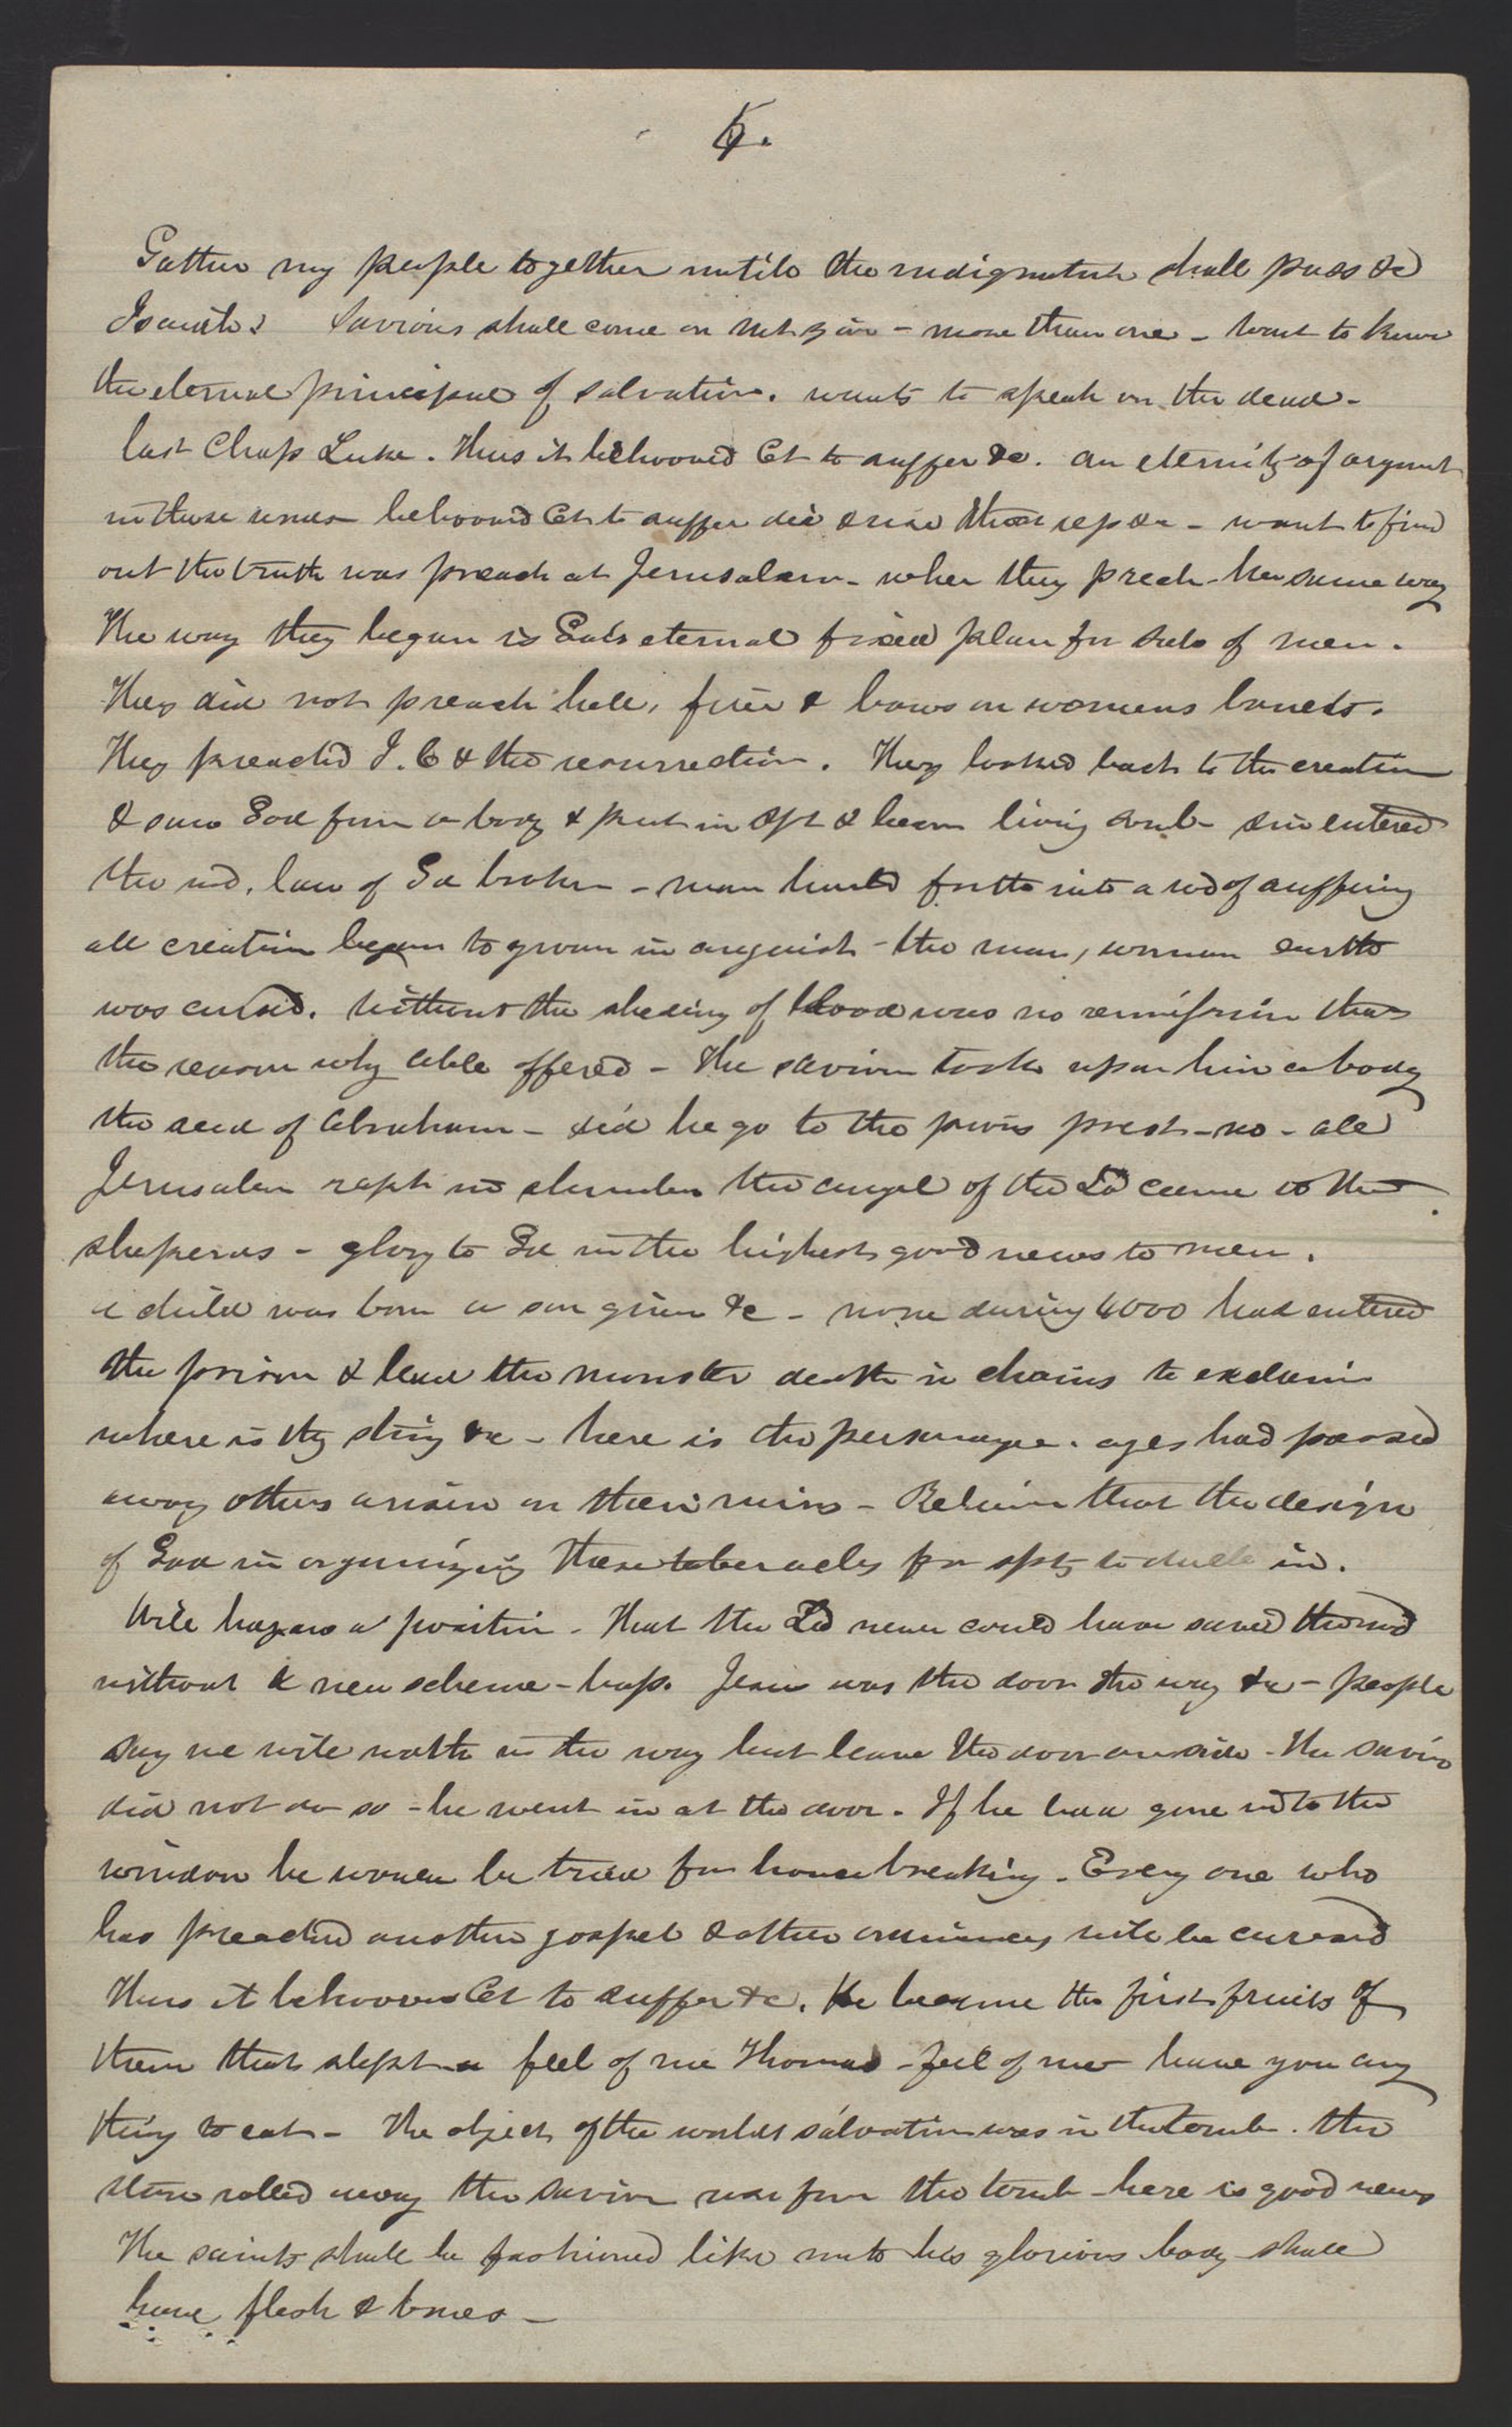 5.
Gather my people together untill the indignation shall pass &c
Isaiah & Saviours shall come on Mt Zion - more than one - want to know
the eternal principal of salvation. wants to speak on the dead -
last Chap Luke. Thus it behooved Ct to suffer &c. an eternity of argument
in these behooved Ct to suffer die & rise then rep &c - want to find
out the truth was preach at Jerusalem - wher they preach - her same way
The way they began is Gd's eternal fixed plan for salv of men.
They did not preach hell, fire & bows on womens bonets.
They preached J. C & the resurrection. They looked back to the creation
& saw God form a body & put in spt & becom living soul - sin entered
the wd, law of Gd broken - man hurled forth into a wd of suffering
all creation began to groan in anguish - the man, woman earth
was cursed. without the sheding of blood was no remission that
the reason why able offered - The savior took upon him a body
the seed of Abraham - did he go to the pious priest - no - all
Jerusalem rapt in slumber the angel of the Ld came to the
sheperds - glory to Gd in the highest good news to men.
a child was born a son given &c - none during 4000 had entered
the prison & lead the monster death in chains to exclaim
where is thy sting &c - here is the personage. ages had passed
away others arisen on their ruins - Believe that the design
of God in organizing these tabernacles for spts to dwell in.
Will hazard a position - that the Ld never could have saved the wd
without a new scheme - bap. Jesus was the door the way &c - people
say we will walk in the way but leave the door one side - the savior
did not do so - he went in at the door. If he had gone into the
window he would be tried for house breaking - Every one who
has preached another gospel & other ordinances will be cursed
Thus it behooves Ct to suffer &c. He became the first fruits of
them that slept - feel of me Thomas - feel of me - have you any
thing to eat - The object of the worlds salvation was in the tomb. the
stone rolled away the savior rose from the tomb - here is good news
The saints shall be fashioned like unto his glorious body shall
have flesh & bones -